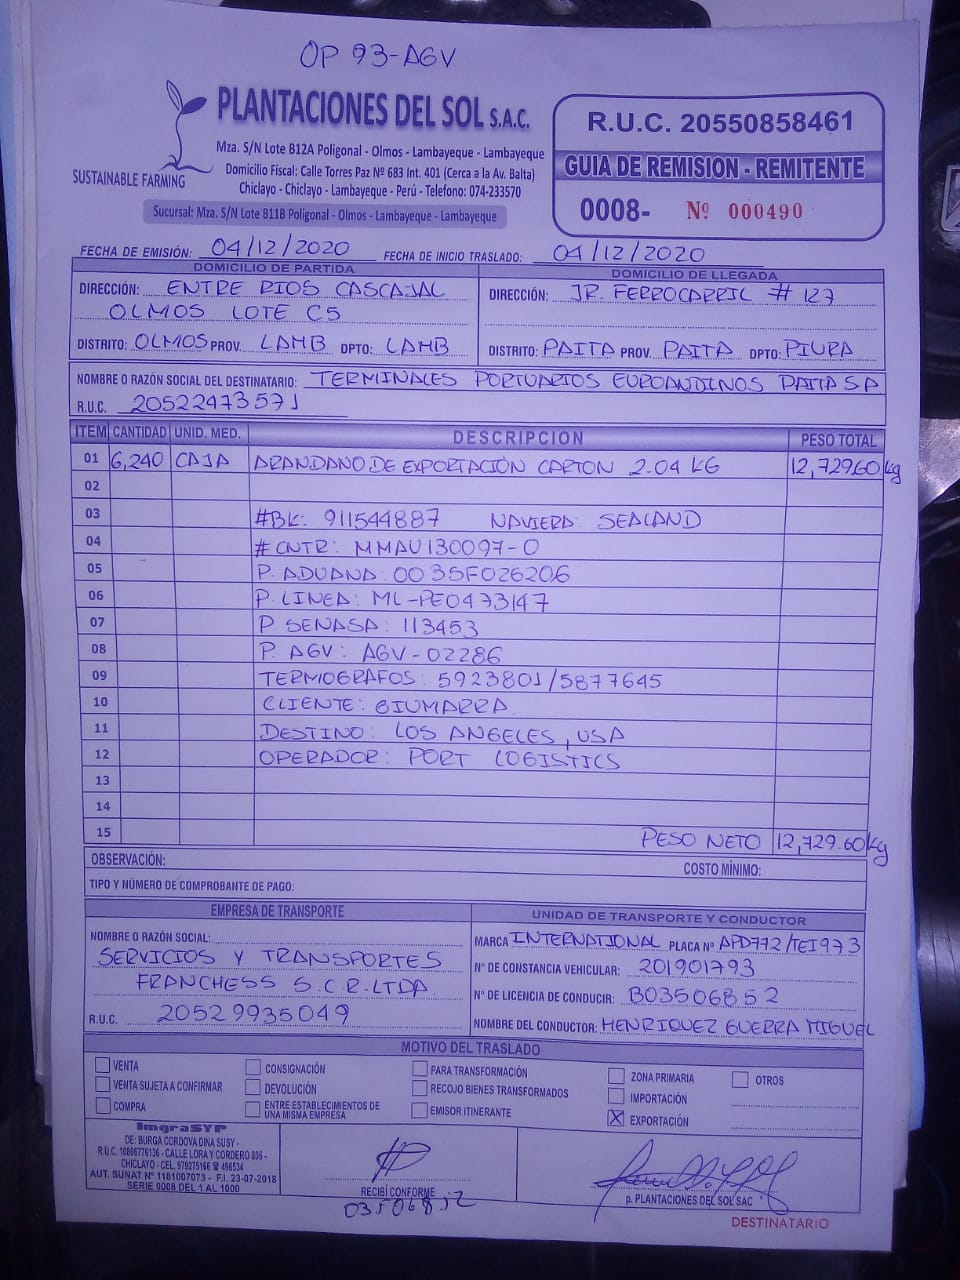 OP 93-AGV
PLANTACIONES DEL SOL S.A.C.
Mza. S/N Lote B12A Poligonal - Olmos - Lambayeque - Lambayeque
Domicilio Fiscal: Calle Torres Paz Nº 683 Int. 401 (Cerca a la Av. Balta)
Chiclayo - Chiclayo - Lambayeque - Perú - Telefono: 074-233570
SUSTAINABLE FARMING
Sucursal: Mza. S/N Lote B11B Poligonal - Olmos - Lambayeque - Lambayeque
R.U.C. 20550858461
GUIA DE REMISION - REMITENTE
0008- Nº 000490
FECHA DE EMISIÓN: 04/12/2020 FECHA DE INICIO TRASLADO: 04/12/2020
DOMICILIO DE PARTIDA
DIRECCIÓN: ENTRE RIOS CASCAJAL
OLMOS LOTE C5
DISTRITO: OLMOS PROV. LAMB DPTO: LAMB
DOMICILIO DE LLEGADA
DIRECCIÓN: JR. FERROCARRIL # 127
DISTRITO: PAITA PROV. PAITA DPTO: PIURA
NOMBRE O RAZÓN SOCIAL DEL DESTINATARIO: TERMINALES PORTUARIOS EUROANDINOS PAITA SA
R.U.C. 20522473571
ITEM CANTIDAD UNID. MED. DESCRIPCION PESO TOTAL
01 6,240 CAJA ARANDANO DE EXPORTACIÓN CARTON 2.04 KG 12,729.60 kg
02
03 #BK: 911544887 NAVIERA: SEALAND
04 # CNTR: MMAU130097-0
05 P. ADUANA: 0035F026206
06 P. LINEA: ML-PE0473147
07 P. SENASA: 113453
08 P. AGV: AGV-02286
09 TERMOGRAFOS: 5923801/5877645
10 CLIENTE: GIUMARRA
11 DESTINO: LOS ANGELES, USA
12 OPERADOR: PORT LOGISTICS
13
14
15 PESO NETO 12,729.60 kg
OBSERVACIÓN: COSTO MÍNIMO:
TIPO Y NÚMERO DE COMPROBANTE DE PAGO:
EMPRESA DE TRANSPORTE
NOMBRE O RAZÓN SOCIAL:
SERVICIOS Y TRANSPORTES
FRANCHESS S.C.R.LTDA.
R.U.C. 20529935049
UNIDAD DE TRANSPORTE Y CONDUCTOR
MARCA INTERNATIONAL PLACA Nº APD772/TEI973
Nº DE CONSTANCIA VEHICULAR: 201901793
Nº DE LICENCIA DE CONDUCIR: B03506852
NOMBRE DEL CONDUCTOR: HENRIQUEZ GUERRA MIGUEL
MOTIVO DEL TRASLADO
VENTA CONSIGNACIÓN PARA TRANSFORMACIÓN ZONA PRIMARIA OTROS
VENTA SUJETA A CONFIRMAR DEVOLUCIÓN RECOJO BIENES TRANSFORMADOS IMPORTACIÓN
COMPRA ENTRE ESTABLECIMIENTOS DE EMISOR ITINERANTE X EXPORTACIÓN
UNA MISMA EMPRESA
ImgraSYP
DE: BURGA CORDOVA DINA SUSY -
R.U.C. 10806776136 - CALLE LORA Y CORDERO 806 -
CHICLAYO - CEL. 979275166 ☎ 496534
AUT. SUNAT Nº 1181007073 - F.I. 23-07-2018
SERIE 0008 DEL 1 AL 1000
RECIBÍ CONFORME
03506852
p. PLANTACIONES DEL SOL SAC
DESTINATARIO